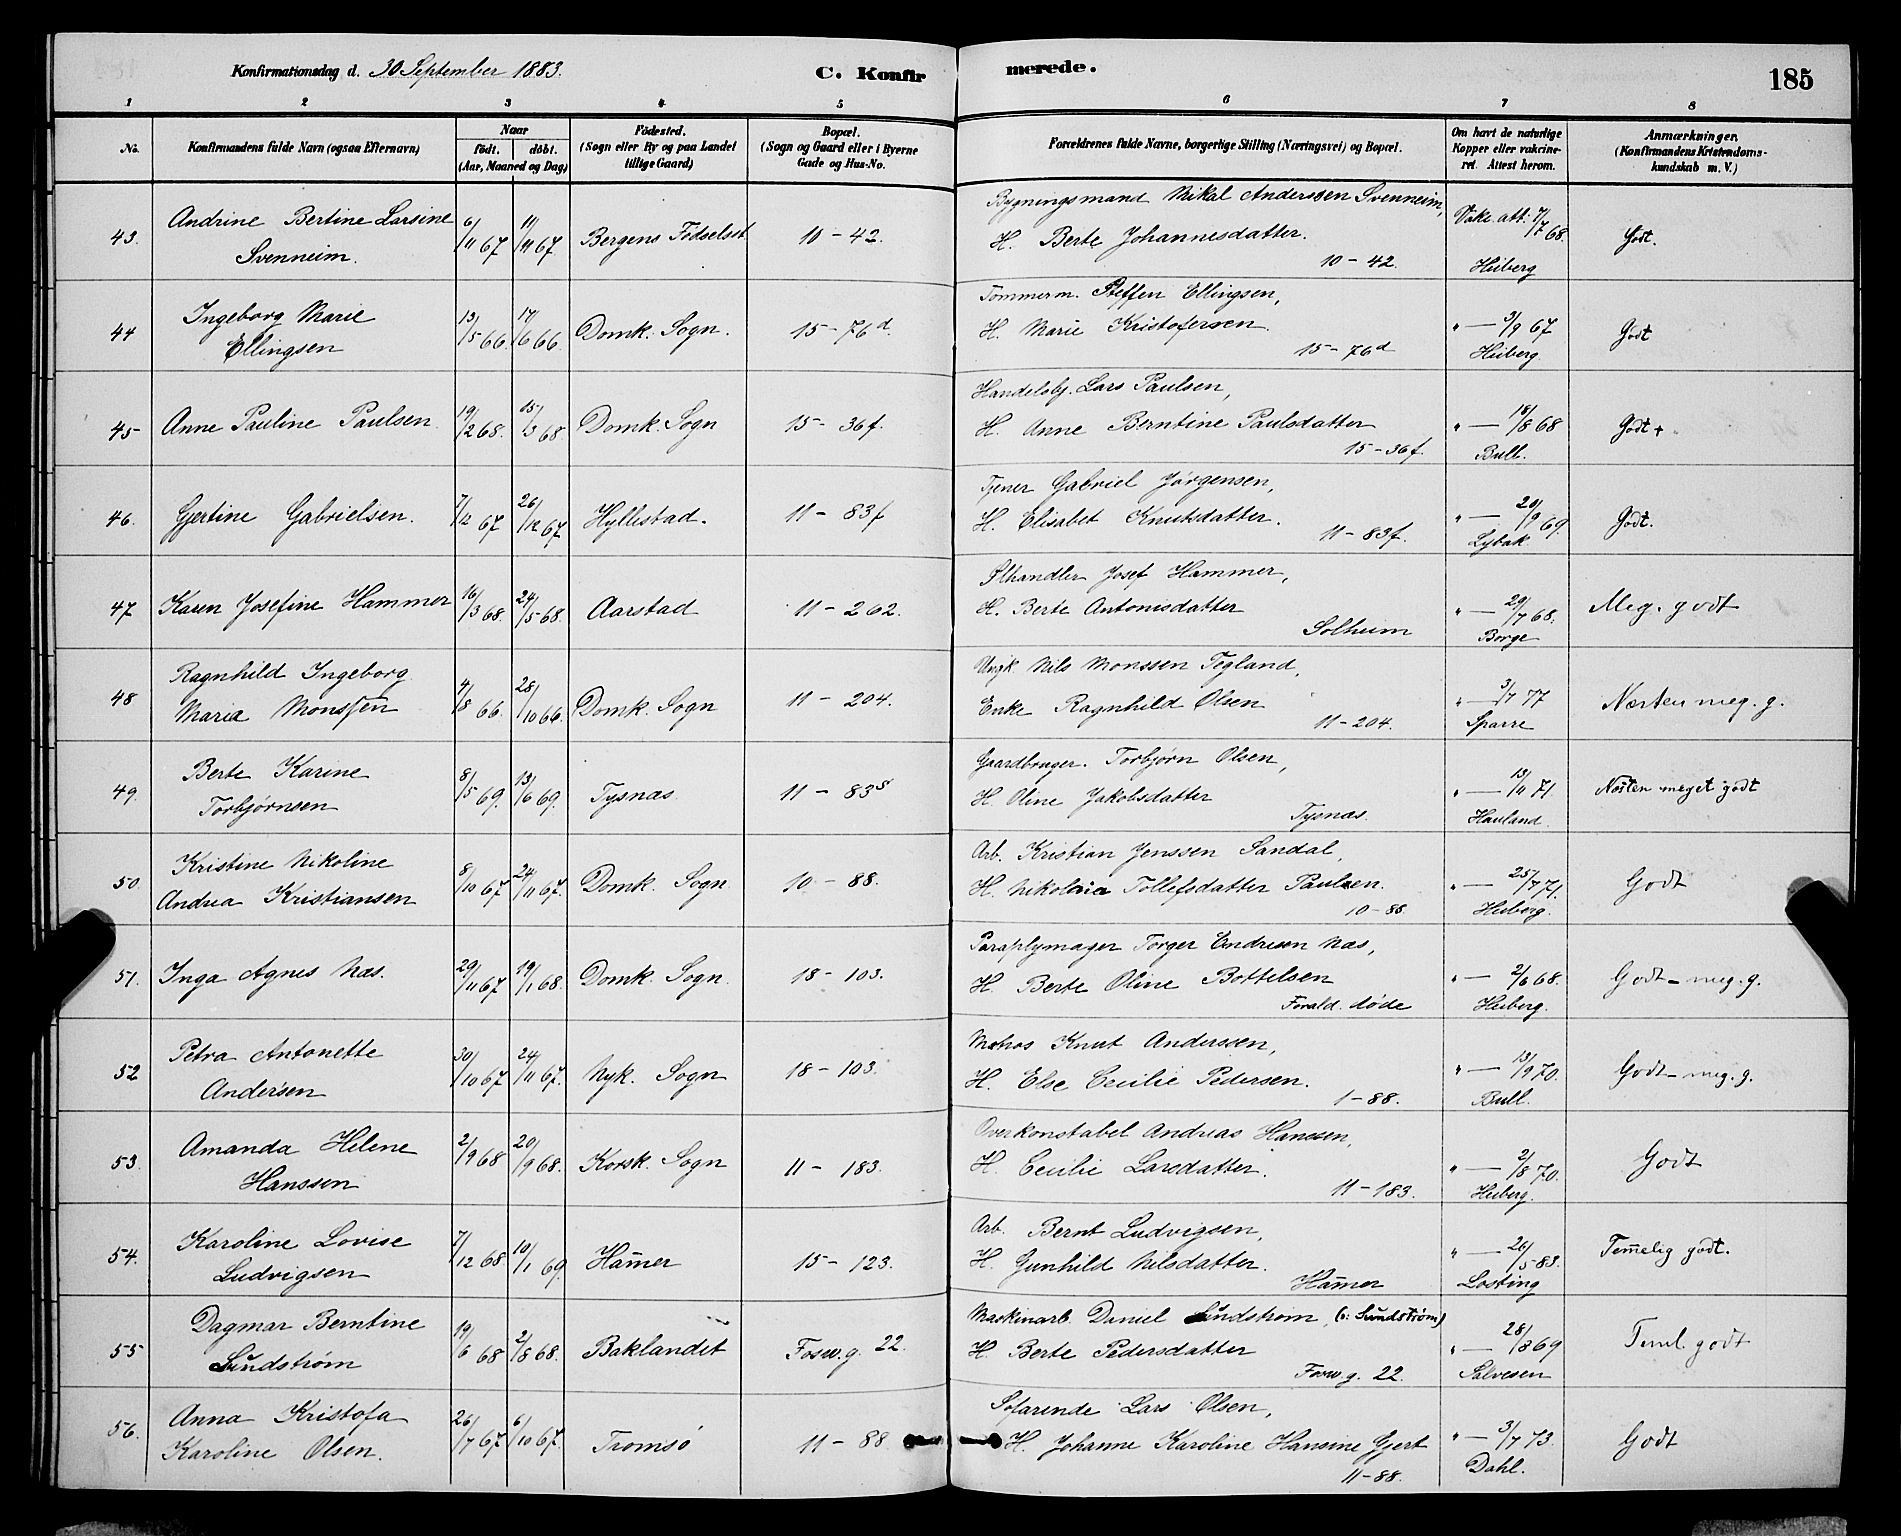 Konfirmationsdag d. 30 September 1883.
C. Konfirmerede.
185
1 2 3 4 5 6 7 8
No.
Konfirmandens fulde Navn (ogsaa Efternavn)
Naar
födt. döbt.
(Aar, Maaned og Dag)
Födested.
(Sogn eller By og paa Landet
tillige Gaard)
Bopæl.
(Sogn og Gaard eller i Byerne
Gade og Hus-No.
Forældrenes fulde Navne, borgerlige Stilling (Næringsvei) og Bopæl.
Om havt de naturlige
Kopper eller vakcine-
ret. Attest herom.
Anmærkninger.
(Konfirmandens Kristendoms-
kundskab m. V.)
43. Andrine Bertine Larsine
Svenneim.
6/11 67 11/11 67 Bergens Fødselsst. 10-42.
Bygningsmand Mikal Anderssen Svenneim,
H. Berte Johannesdatter.
10-42.
Vakc. att. 7/7 68.
Heiberg
Godt.
44 Ingeborg Marie
Ellingsen
13/5 66. 17/6 66. Domk. Sogn. 15-76d.
Tømmerm. Steffen Ellingsen,
H. Marie Kristofersen.
15-76d
" — 3/9 67
Heiberg
Godt
45 Anne Pauline Paulsen. 19/2 68. 15/3 68. Domk. Sogn 15-36f.
Handelsbj. Lars Paulsen,
H. Anne Berntine Paulsdatter
15-36f.
" — 18/8 68
Bull.
Godt +
46. Gjertine Gabrielsen. 7/12 67 26/12 67 Hyllestad. 11-83f
Tjener Gabriel Jørgensen,
H. Elisabet Knutsdatter.
11-83f.
" — 20/9 69.
Lybæk
Godt.
47 Karen Josefine Hammer 16/3 68. 24/5 68. Aarstad 11-262.
Ølhandler Josef Hammer,
H. Berte Antonisdatter
Solheim
" — 29/7 68.
Borge
Meg. godt
48 Ragnhild Ingeborg
Maria Monssen
4/8 66. 28/10 66. Domk. Sogn 11-204.
Nils Monssen Tegland,
Enke Ragnhild Olsen
11-204.
" — 3/7 77
Sparre
Næsten meg. g.
49. Berte Karine
Torbjørnsen
8/5 69. 13/6 69. Tysnæs 11-83s
Gaardbruger. Torbjørn Olsen,
H. Oline Jakobsdatter
Tysnæs.
" — 13/11 71
Hauland.
Næsten meget godt
50. Kristine Nikoline
Andrea Kristiansen
8/10 67 24/11 67. Domk. Sogn. 10-88.
Arb. Kristian Jenssen Sandal,
H. Nikolina Tollefsdatter Paulsen.
10-88.
" — 25/7 71.
Heiberg.
Godt
51. Inga Agnes Næs. 29/11 67 19/1 68. Domk. Sogn. 18-103.
Paraplymager Torger Endresen Næs,
H. Berte Oline Bottelsen
Foræld. døde
" — 2/6 68.
Heiberg.
Godt - meg. g.
52 Petra Antonette
Andersen
30/10 67 24/11 67. Nyk. Sogn 18-103.
Matros Knut Anderssen,
H. Else Cecilie Pedersen.
1-88.
" — 13/9 70.
Bull.
Godt - meg. g.
53. Amanda Helene
Hanssen
2/9 68 20/9 68. Korsk. Sogn 11-183.
Overkonstabel Andreas Hanssen,
H. Cecilie Larsdatter.
11-183.
" — 2/8 70.
Heiberg.
Godt
54. Karoline Lovise
Ludvigsen
7/12 68 10/1 69. Ham̄er 15-123.
Arb. Bernt Ludvigsen,
H. Gunhild Nilsdatter.
Ham̄er
" — 26/5 83.
Losting
Tem̄elig godt.
55 Dagmar Berntine
Sundstrøm
19/6 68 2/8 68. Baklandet Fosw.g. 22.
Maskinarb. Daniel Sundstrøm, (ɔ: Sundstrøm)
H. Berte Pedersdatter
Fosw.g. 22.
" — 28/8 69
Salvesen
Teml. godt
56. Anna Kristofa
Karoline Olsen.
26/7 67 6/10 67. Tromsø 11-88
Søfarende Lars Olsen,
H. Johanne Karoline Hansine Gjert
11-88.
" — 3/7 73.
Dahl.
Godt